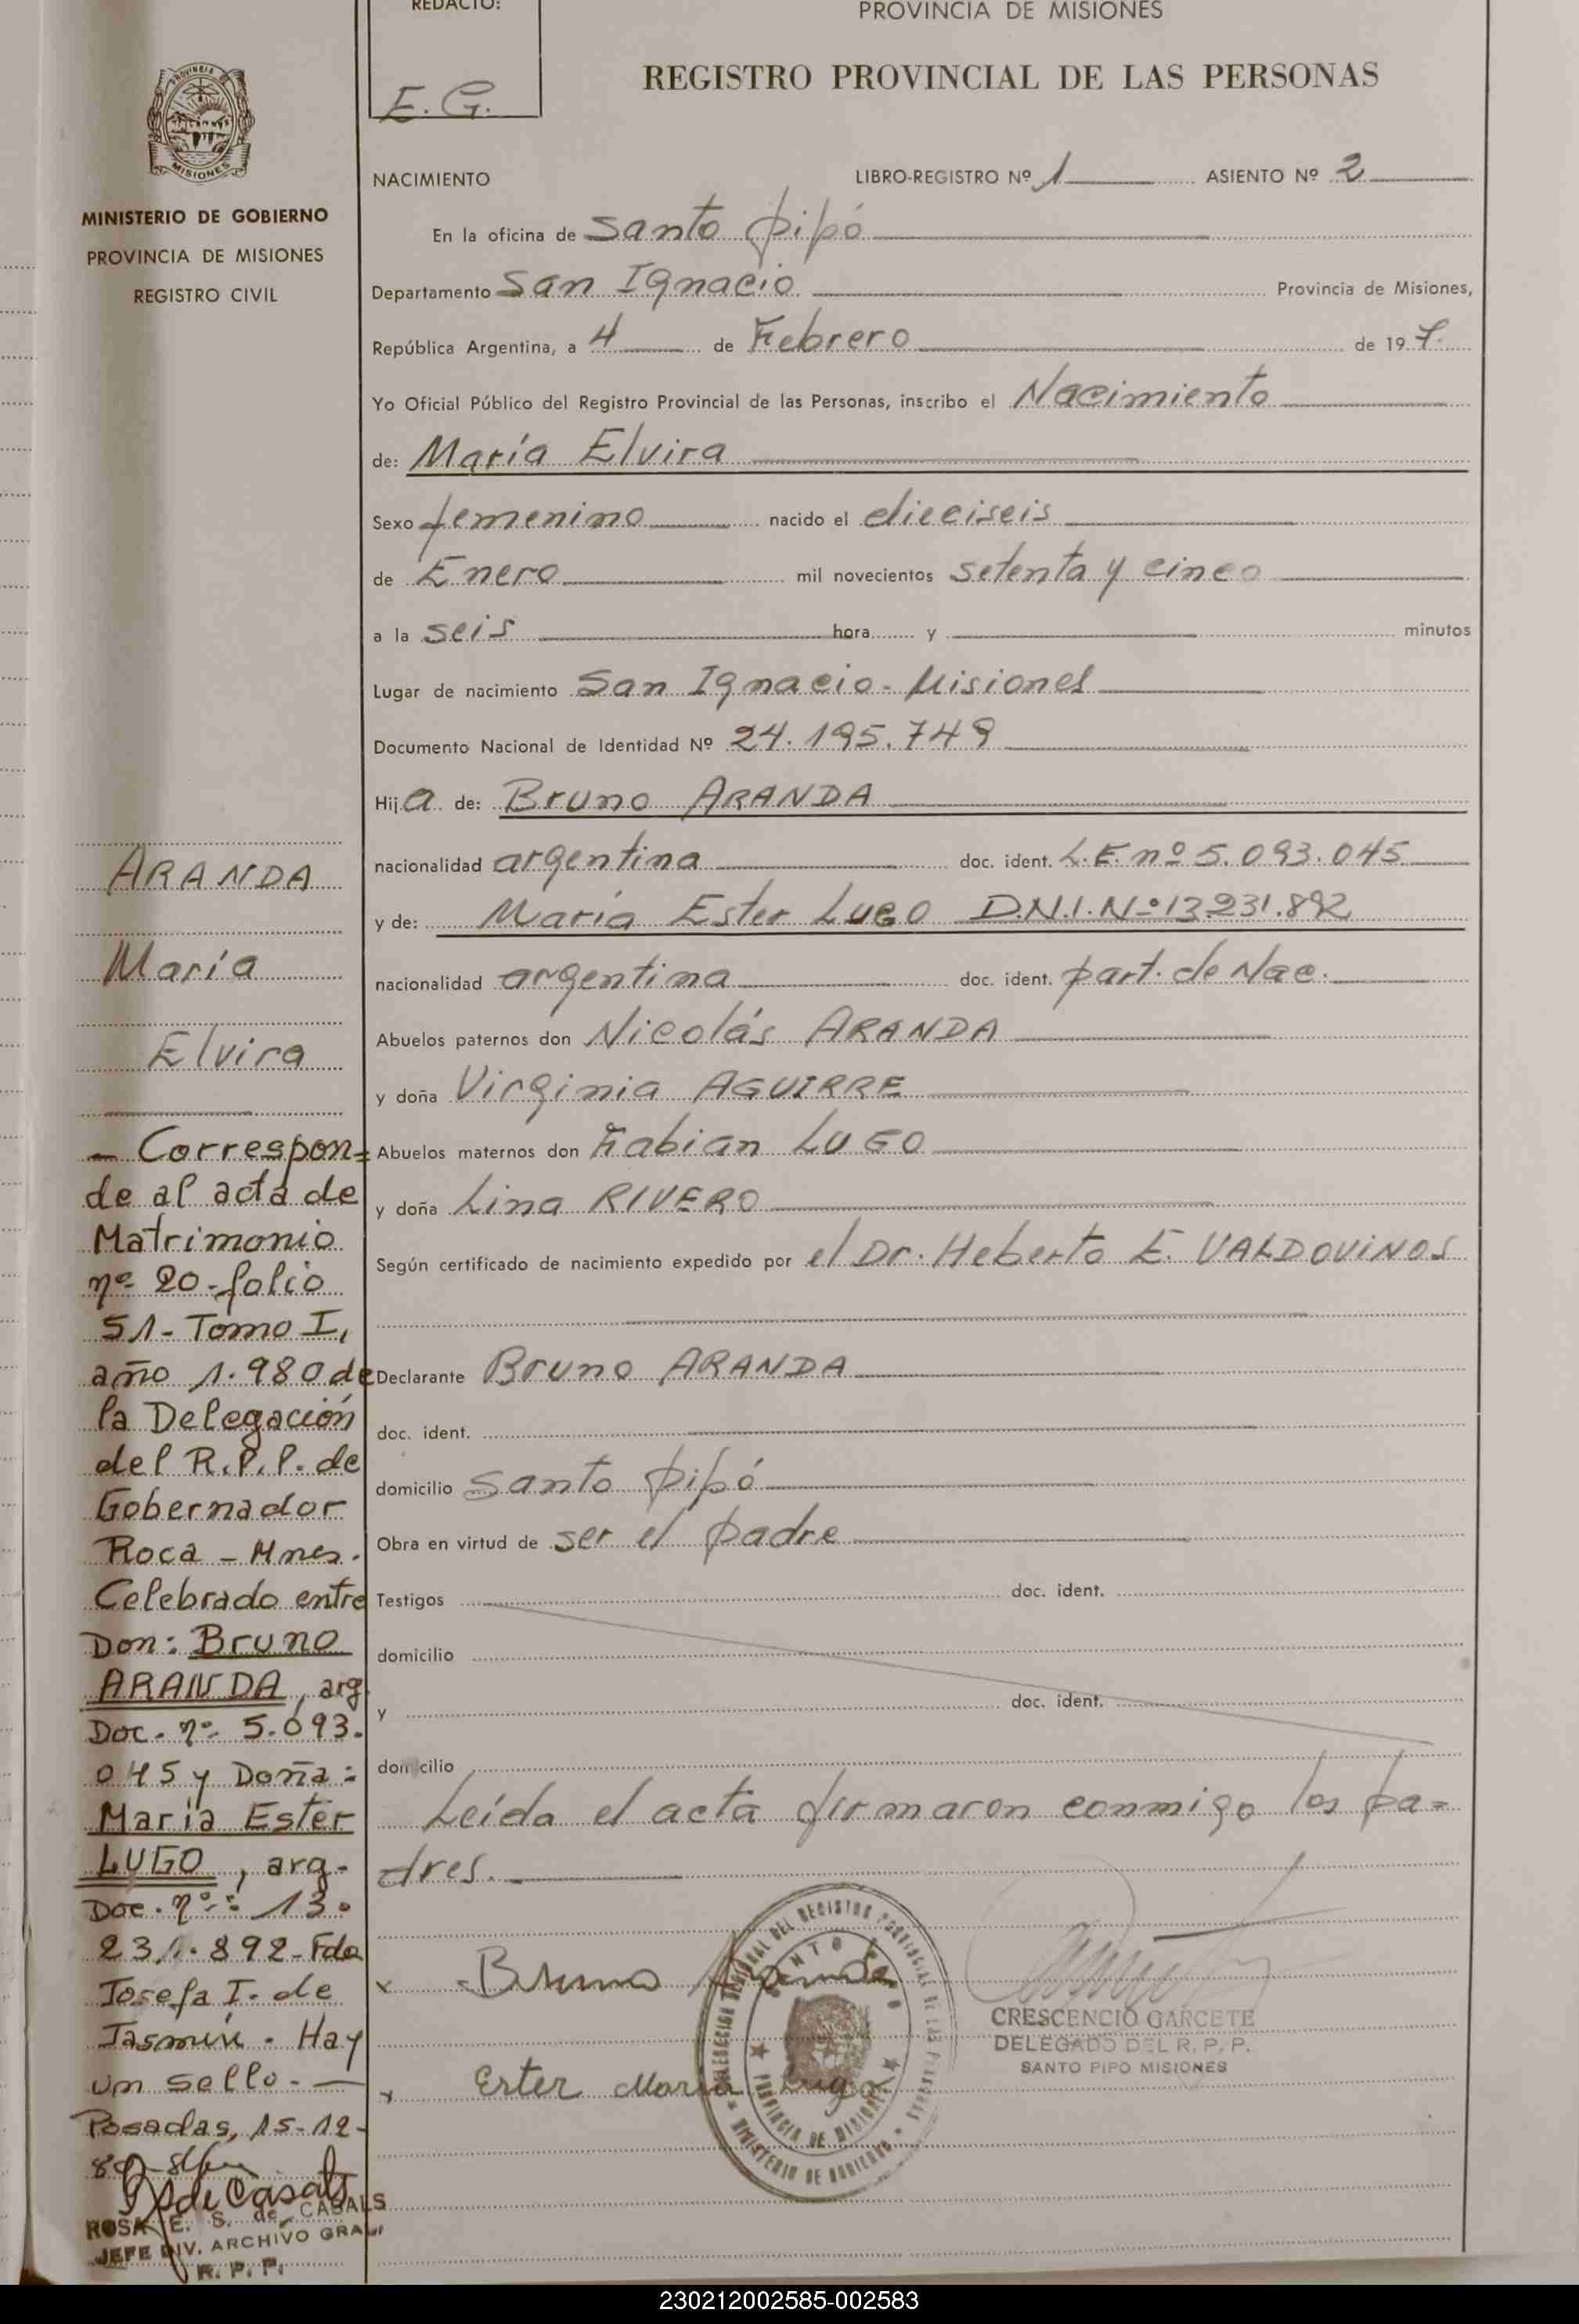 REDACTÓ:
E. G.
PROVINCIA DE MISIONES
REGISTRO PROVINCIAL DE LAS PERSONAS
MISIONES
MINISTERIO DE GOBIERNO
PROVINCIA DE MISIONES
REGISTRO CIVIL
NACIMIENTO LIBRO-REGISTRO Nº 1 ASIENTO Nº 2
En la oficina de Santo Pipó
Departamento San Ignacio Provincia de Misiones,
República Argentina, a 4 de Febrero de 197.
Yo Oficial Público del Registro Provincial de las Personas, inscribo el Nacimiento
de: María Elvira
Sexo femenino nacido el dieciseis
de Enero mil novecientos setenta y cinco
a la seis hora y minutos
Lugar de nacimiento San Ignacio - Misiones
Documento Nacional de Identidad Nº 24.195.749
Hija de: Bruno ARANDA
nacionalidad argentina doc. ident. L.E. nº 5.093.045
y de: María Ester LUGO D.N.I. Nº 13.231.892
nacionalidad argentina doc. ident. part. de Nac.
Abuelos paternos don Nicolás ARANDA
y doña Virginia AGUIRRE
Abuelos maternos don Fabian LUGO
y doña Lina RIVERO
Según certificado de nacimiento expedido por el Dr. Heberto E. VALDOVINOS
Declarante Bruno ARANDA
doc. ident.
domicilio Santo Pipó
Obra en virtud de ser el padre
Testigos doc. ident.
domicilio
y doc. ident.
domicilio
Leída el acta firmaron conmigo los pa=
dres.
x Bruno Aranda
x Ester María Lugo
CRESCENCIO GARCETE
DELEGADO DEL R. P. P.
SANTO PIPO MISIONES
ARANDA
María
Elvira
- Correspon=
de al acta de
Matrimonio
nº 20-folio
51-Tomo I,
año 1.980 de
la Delegación
del R.P.P. de
Gobernador
Roca - Mnes.
Celebrado entre
Don: Bruno
ARANDA, arg.
Doc. nº 5.093.
045 y Doña:
María Ester
LUGO, arg.
Doc. nº: 13.
231.892-Fdo
Josefa I. de
Jasmin. Hay
un sello.-
Posadas, 15-12-
80
ROSA E. S. de CASALS
JEFE DIV. ARCHIVO GRAL.
R. P. P.
230212002585-002583